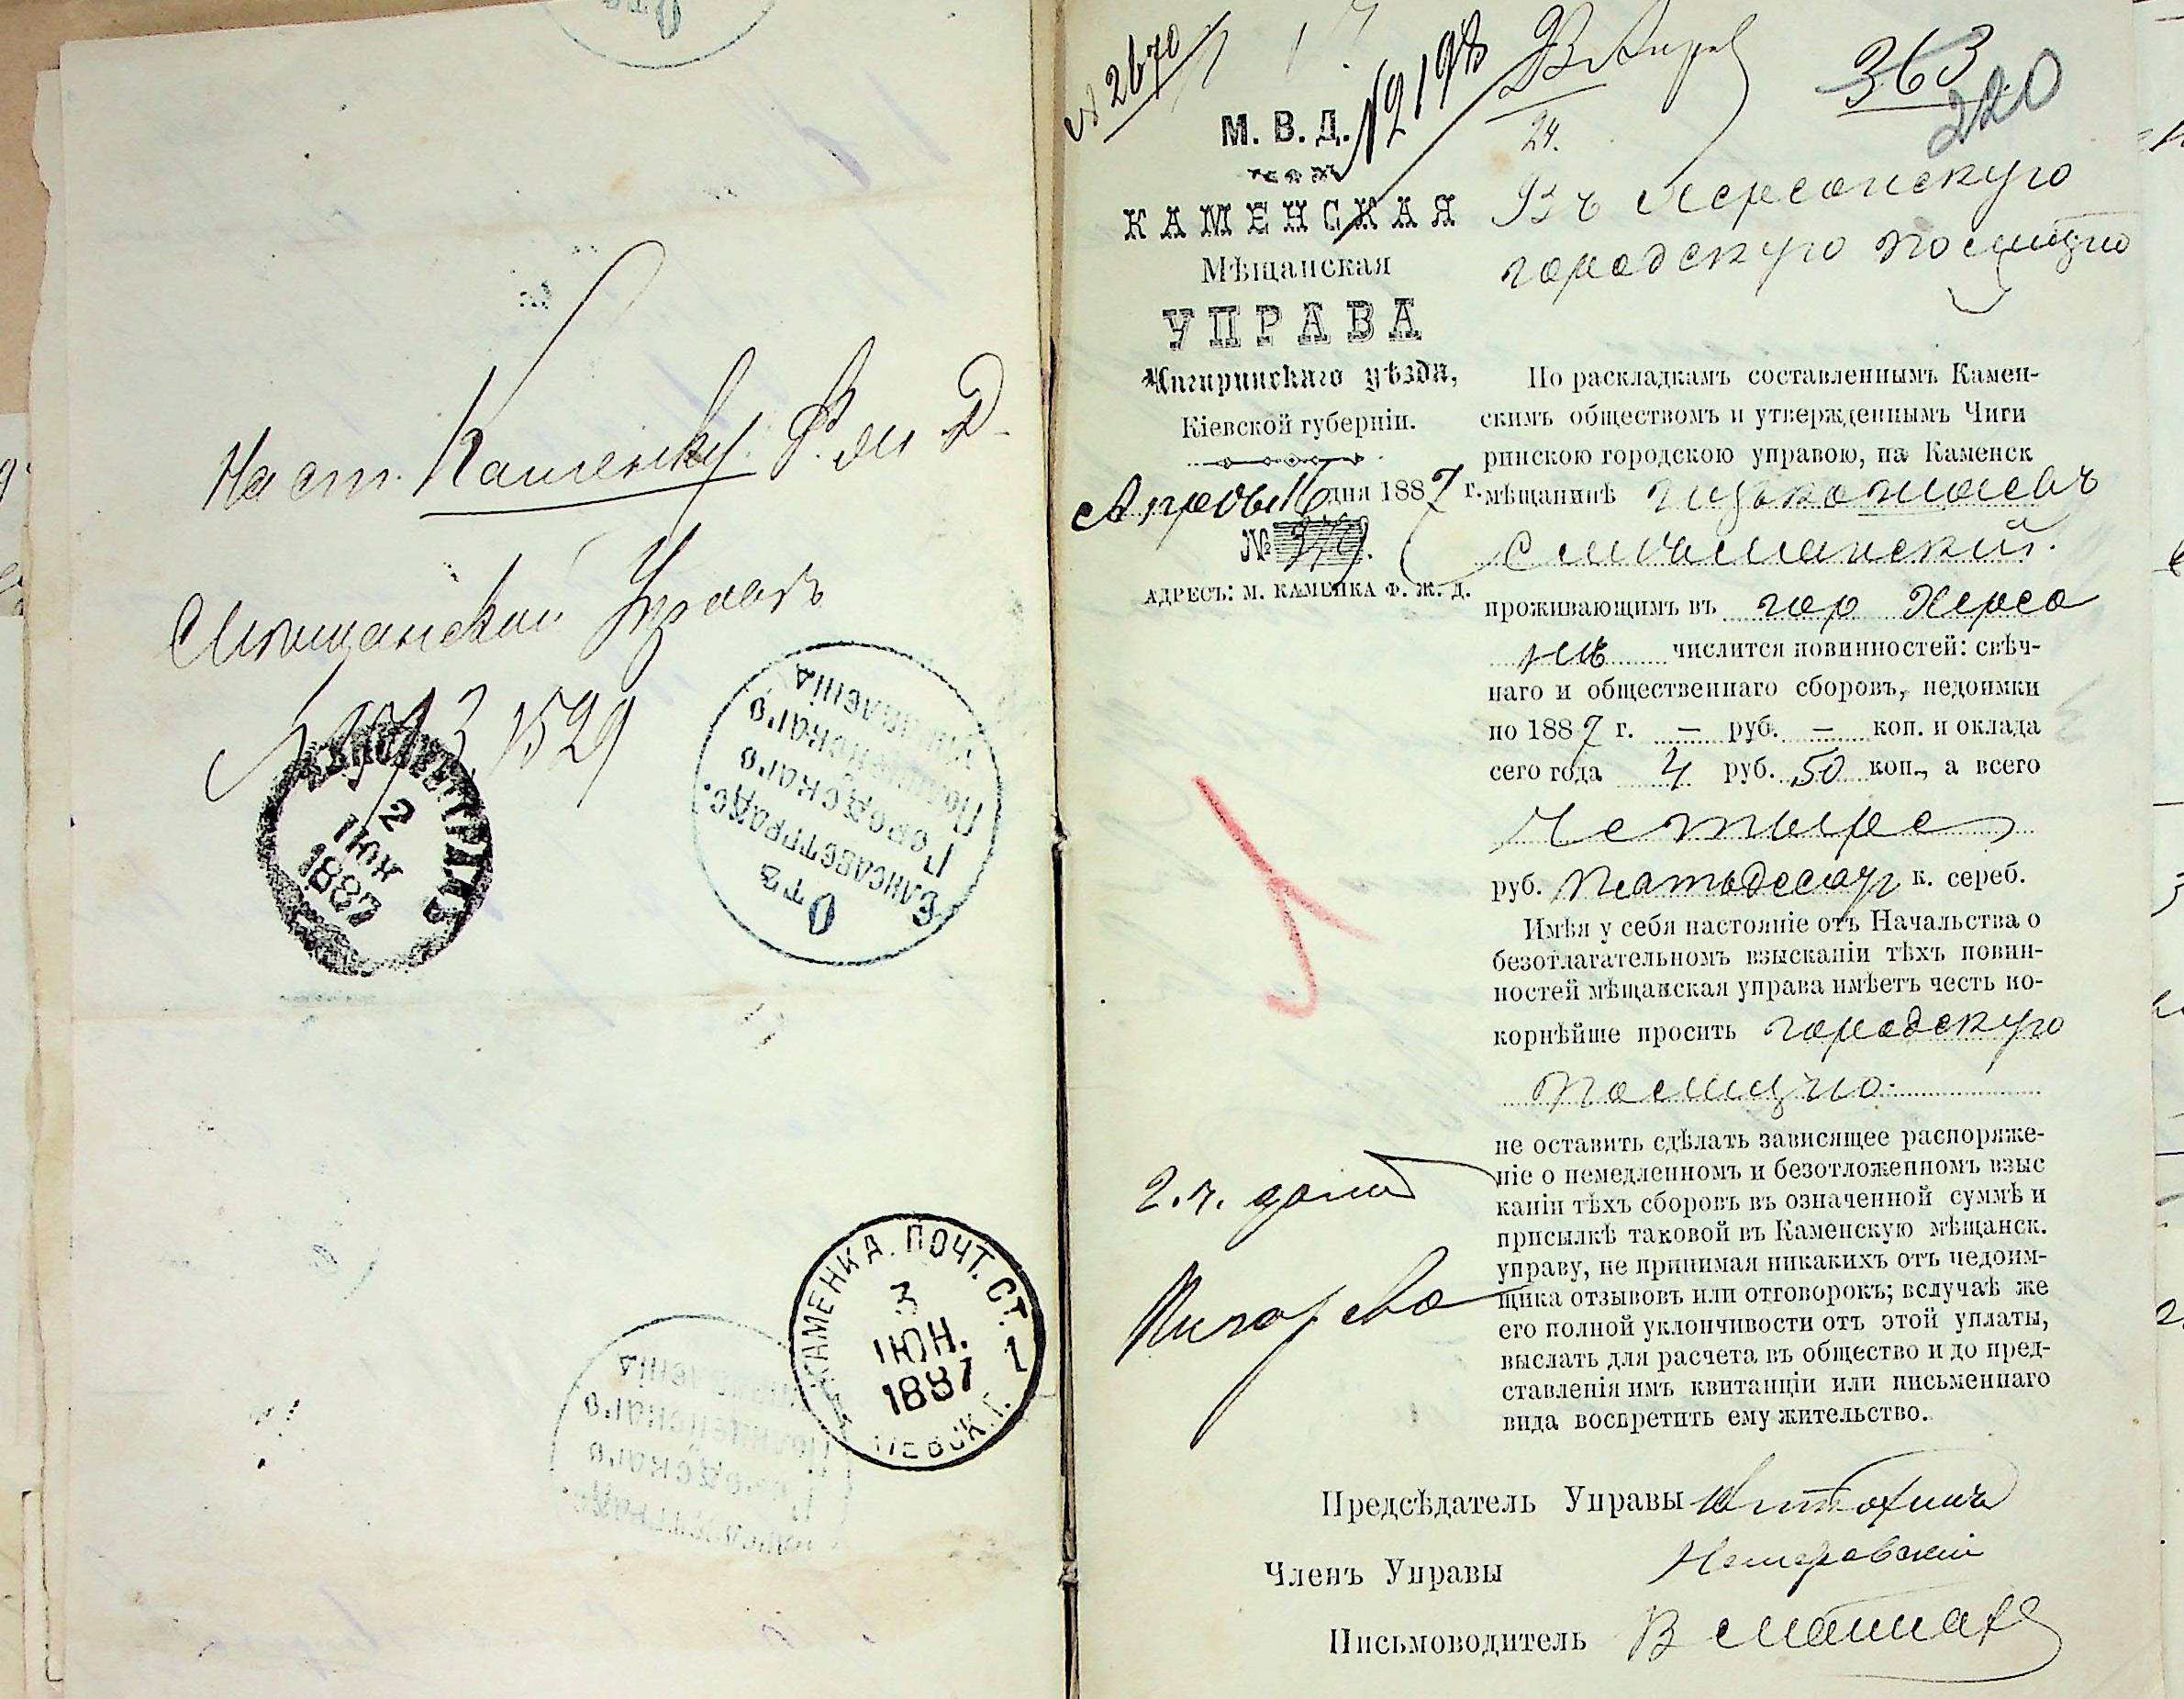 На ст. Каменку Ф. ж. Д.
Мѣщанской Управѣ
1529
ЕЛИСАВЕТГРАДЪ
2
ІЮН
1887
Отъ
Елисаветградс.
Городскаго
Полицейскаго
Управленія
КАМЕНКА. ПОЧТ. СТ.
3
ІЮН.
1887
1
КІЕВСК. Г.
№ 2670
363
220
24.
М. В. Д.
КАМЕНСКАЯ
Мѣщанская
УПРАВА
Чигиринскаго уѣзда,
Кіевской губерніи.
Апрѣля 16 дня 1887 г.
№ 349.
АДРЕСЪ: М. КАМЕНКА Ф. Ж. Д.
Въ Херсонскую
городскую полицію
По раскладкамъ составленнымъ Камен-
скимъ обществомъ и утвержденнымъ Чиги
ринскою городскою управою, на Каменск
мѣщанинѣ
проживающимъ въ гор Херсо
нѣ числится повинностей: свѣч-
наго и общественнаго сборовъ, недоимки
по 1887 г. — руб. — коп. и оклада
сего года 4 руб. 50 коп., а всего
Четыре
руб. пятьдесят к. сереб.
Имѣя у себя настояніе отъ Начальства о
безотлагательномъ взысканіи тѣхъ повин-
ностей мѣщанская управа имѣетъ честь по-
корнѣйше просить городскую
полицію
не оставить сдѣлать зависящее распоряже-
ніе о немедленномъ и безотложенномъ взыс
каніи тѣхъ сборовъ въ означенной суммѣ и
присылкѣ таковой въ Каменскую мѣщанск.
управу, не принимая никакихъ отъ недоим-
щика отзывовъ или отговорокъ; вслучаѣ же
его полной уклончивости отъ этой уплаты,
выслать для расчета въ общество и до пред-
ставленія имъ квитанціи или письменнаго
вида воспретить ему жительство.
Предсѣдатель Управы
Членъ Управы
Письмоводитель